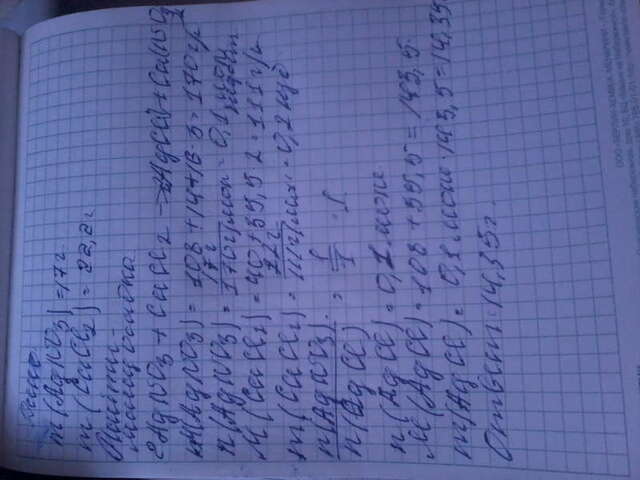 Дано:
m(AgNO3)=17г.
m(CaCl2)=22,2г
Найти:
массу осадка
2AgNO3+CaCl2→2AgCl+Ca(NO3)2
M(AgNO3)=108+14+16·3=170г/
n(AgNO3)=17г/170г/моль=0,1 моль
M(CaCl2)=40+35,5·2=111г/м
m(CaCl2)= 111г/моль=0,2
n(AgNO3)/n(AgCl)=1/1=1
n(AgCl)=0,1 моль.
M(AgCl)=108+35,5=143,5.
m(AgCl)=0,1 моль·143,5=14,35
Ответ: 14,35г.